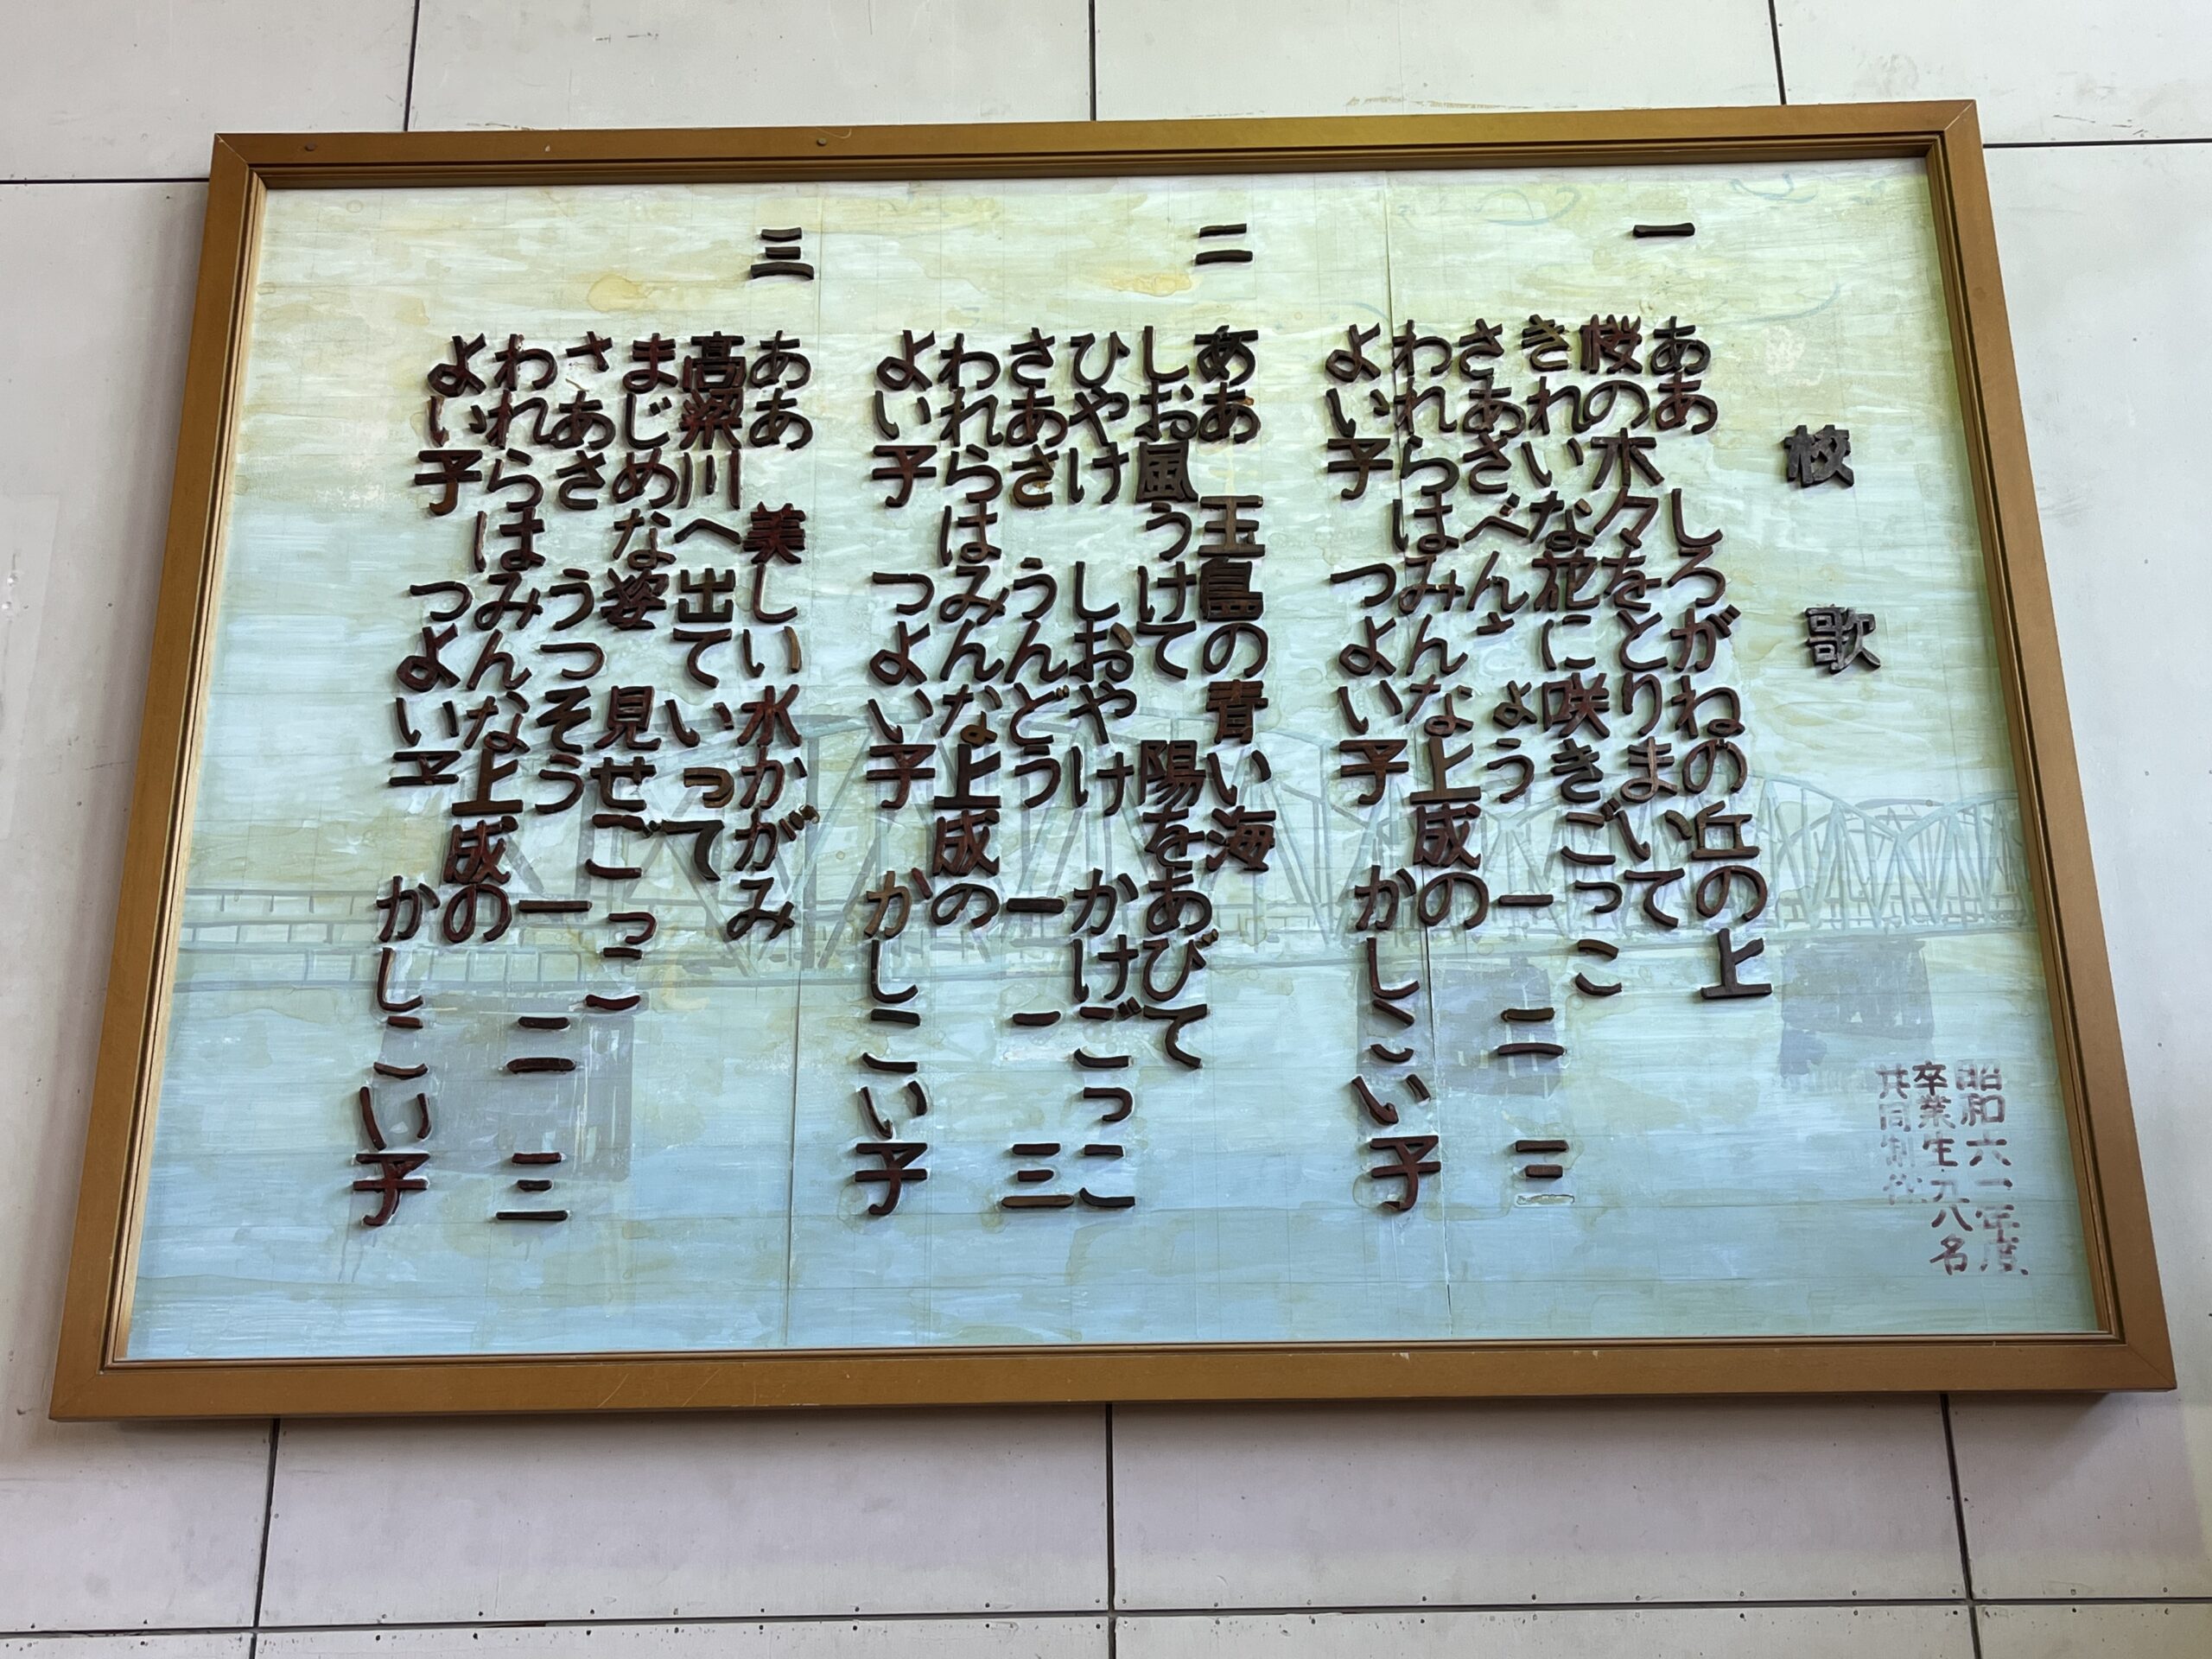 校 歌
一
ああ しろがねの丘の上
桜の木々をとりまいて
きれいな花に咲きごっこ
さあさ べんきょう 一 二 三
われらはみんな上成の
よい子 つよい子 かしこい子
二
ああ 玉島の青い海
しお風うけて 陽をあびて
ひやけ しおやけ かけごっこ
さあさ うんどう 一 二 三
われらはみんな上成の
よい子 つよい子 かしこい子
三
ああ 美しい水かがみ
高梁川へ出て いって
まじめな姿 見せごっこ
さあさ うつそう 一 二 三
われらはみんな上成の
よい子 つよい子 かしこい子
昭和六二年度
卒業生九八名
共同制作